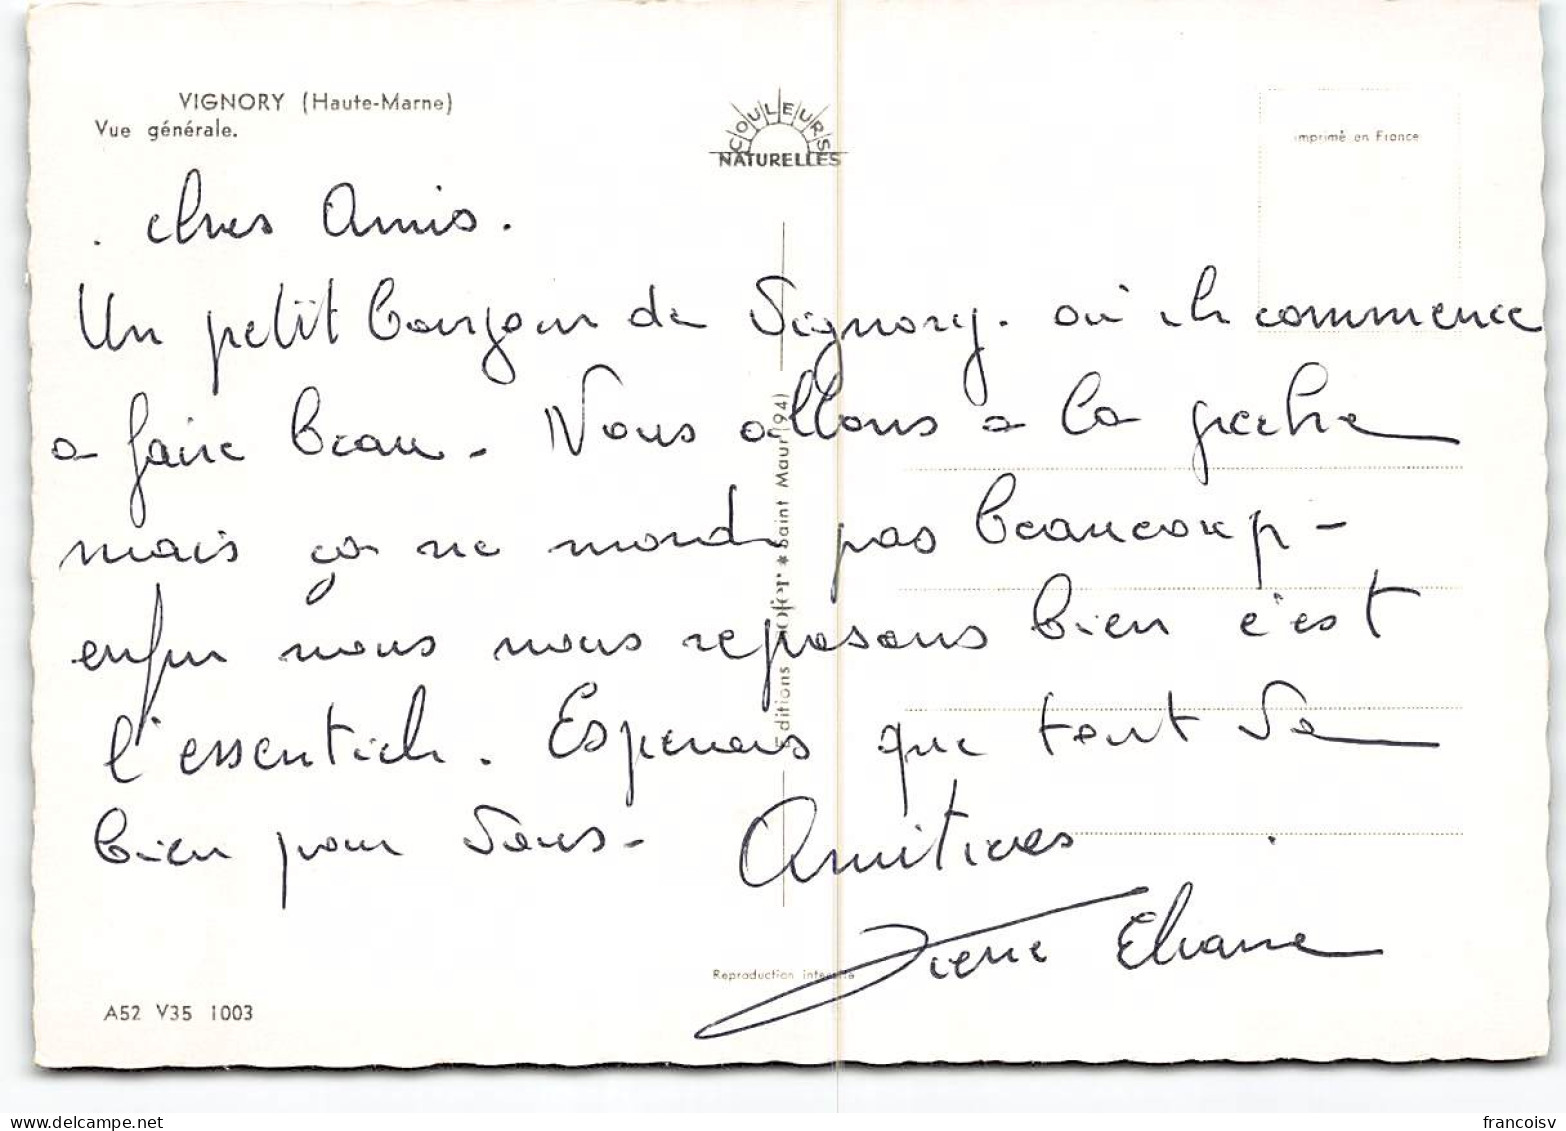 VIGNORY (Haute-Marne)
Vue générale.
COULEURS
NATURELLES
Imprimé en France
chers Amis.
Un petit bonjour de Vignory. où il commence
a faire beau. Nous allons a la peche
mais ça ne mord pas beaucoup -
enfin nous nous reposons bien c'est
l'essentiel. Esperons que tout va
bien pour vous - Amitiées
Pierre Eliane
Editions * Saint Maur (94)
Reproduction interdite
A52 V35 1003
delcampe.net
francoisv